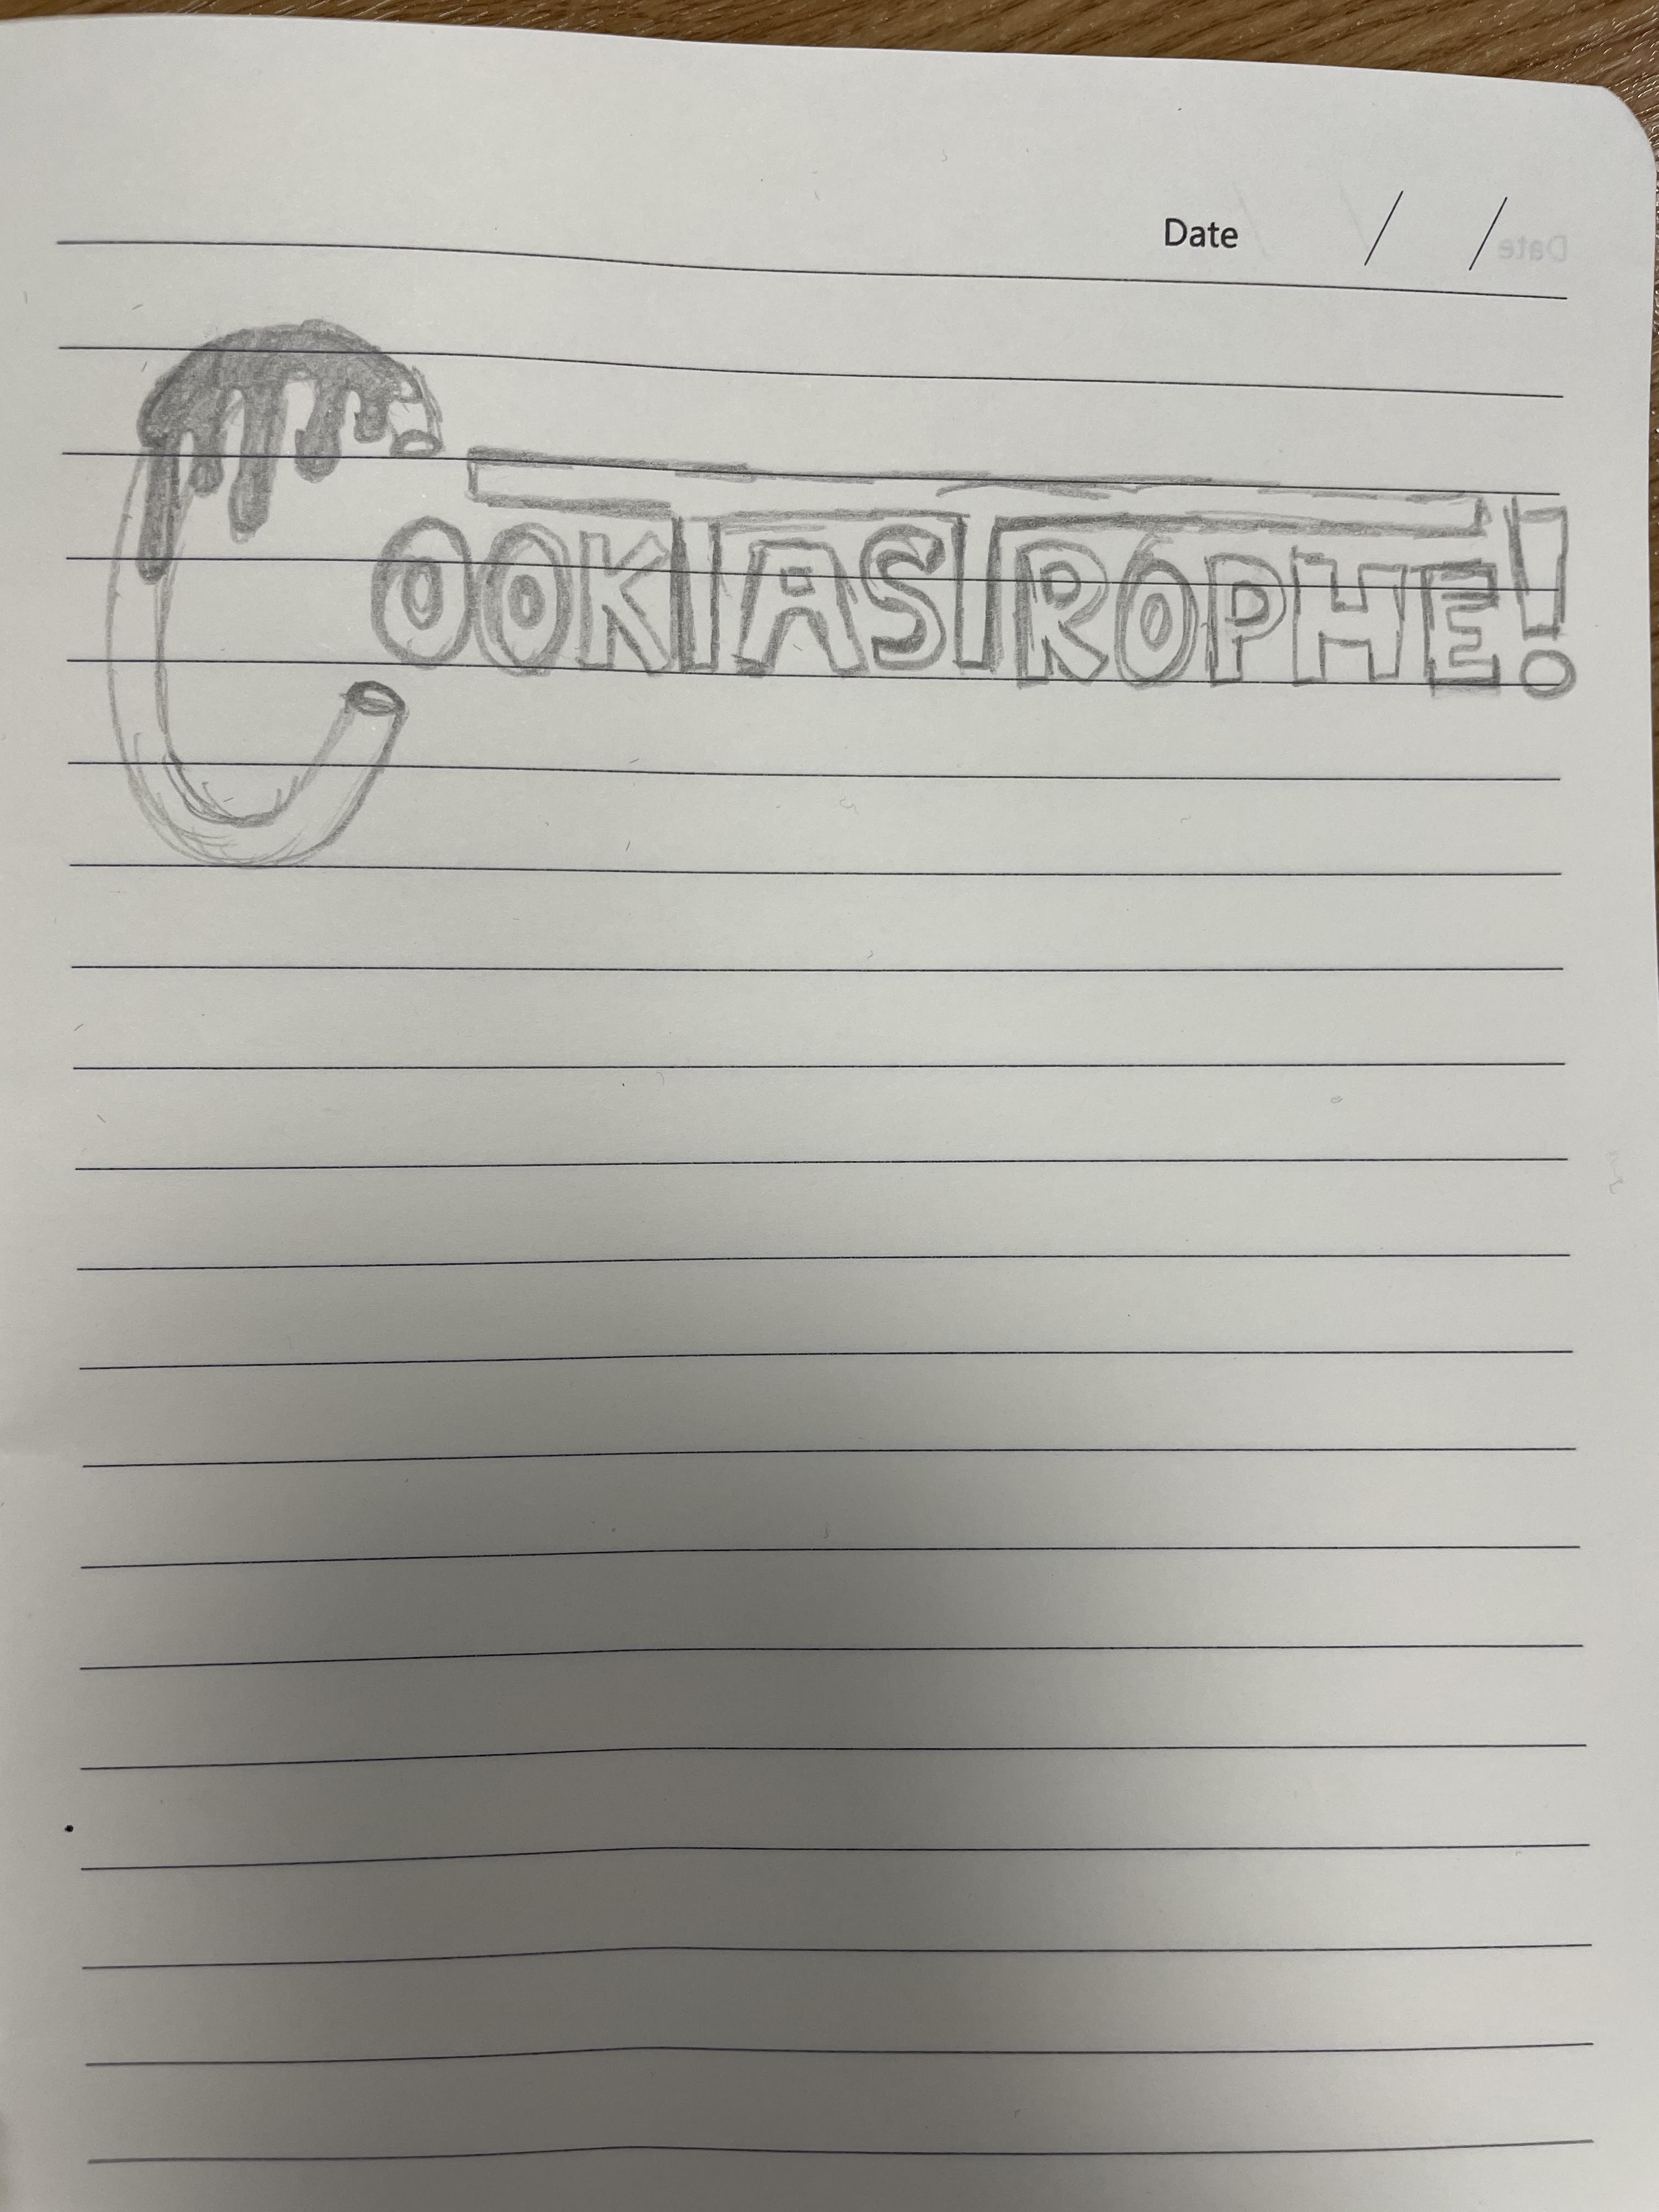 Date / /
COOKTASTROPHE!